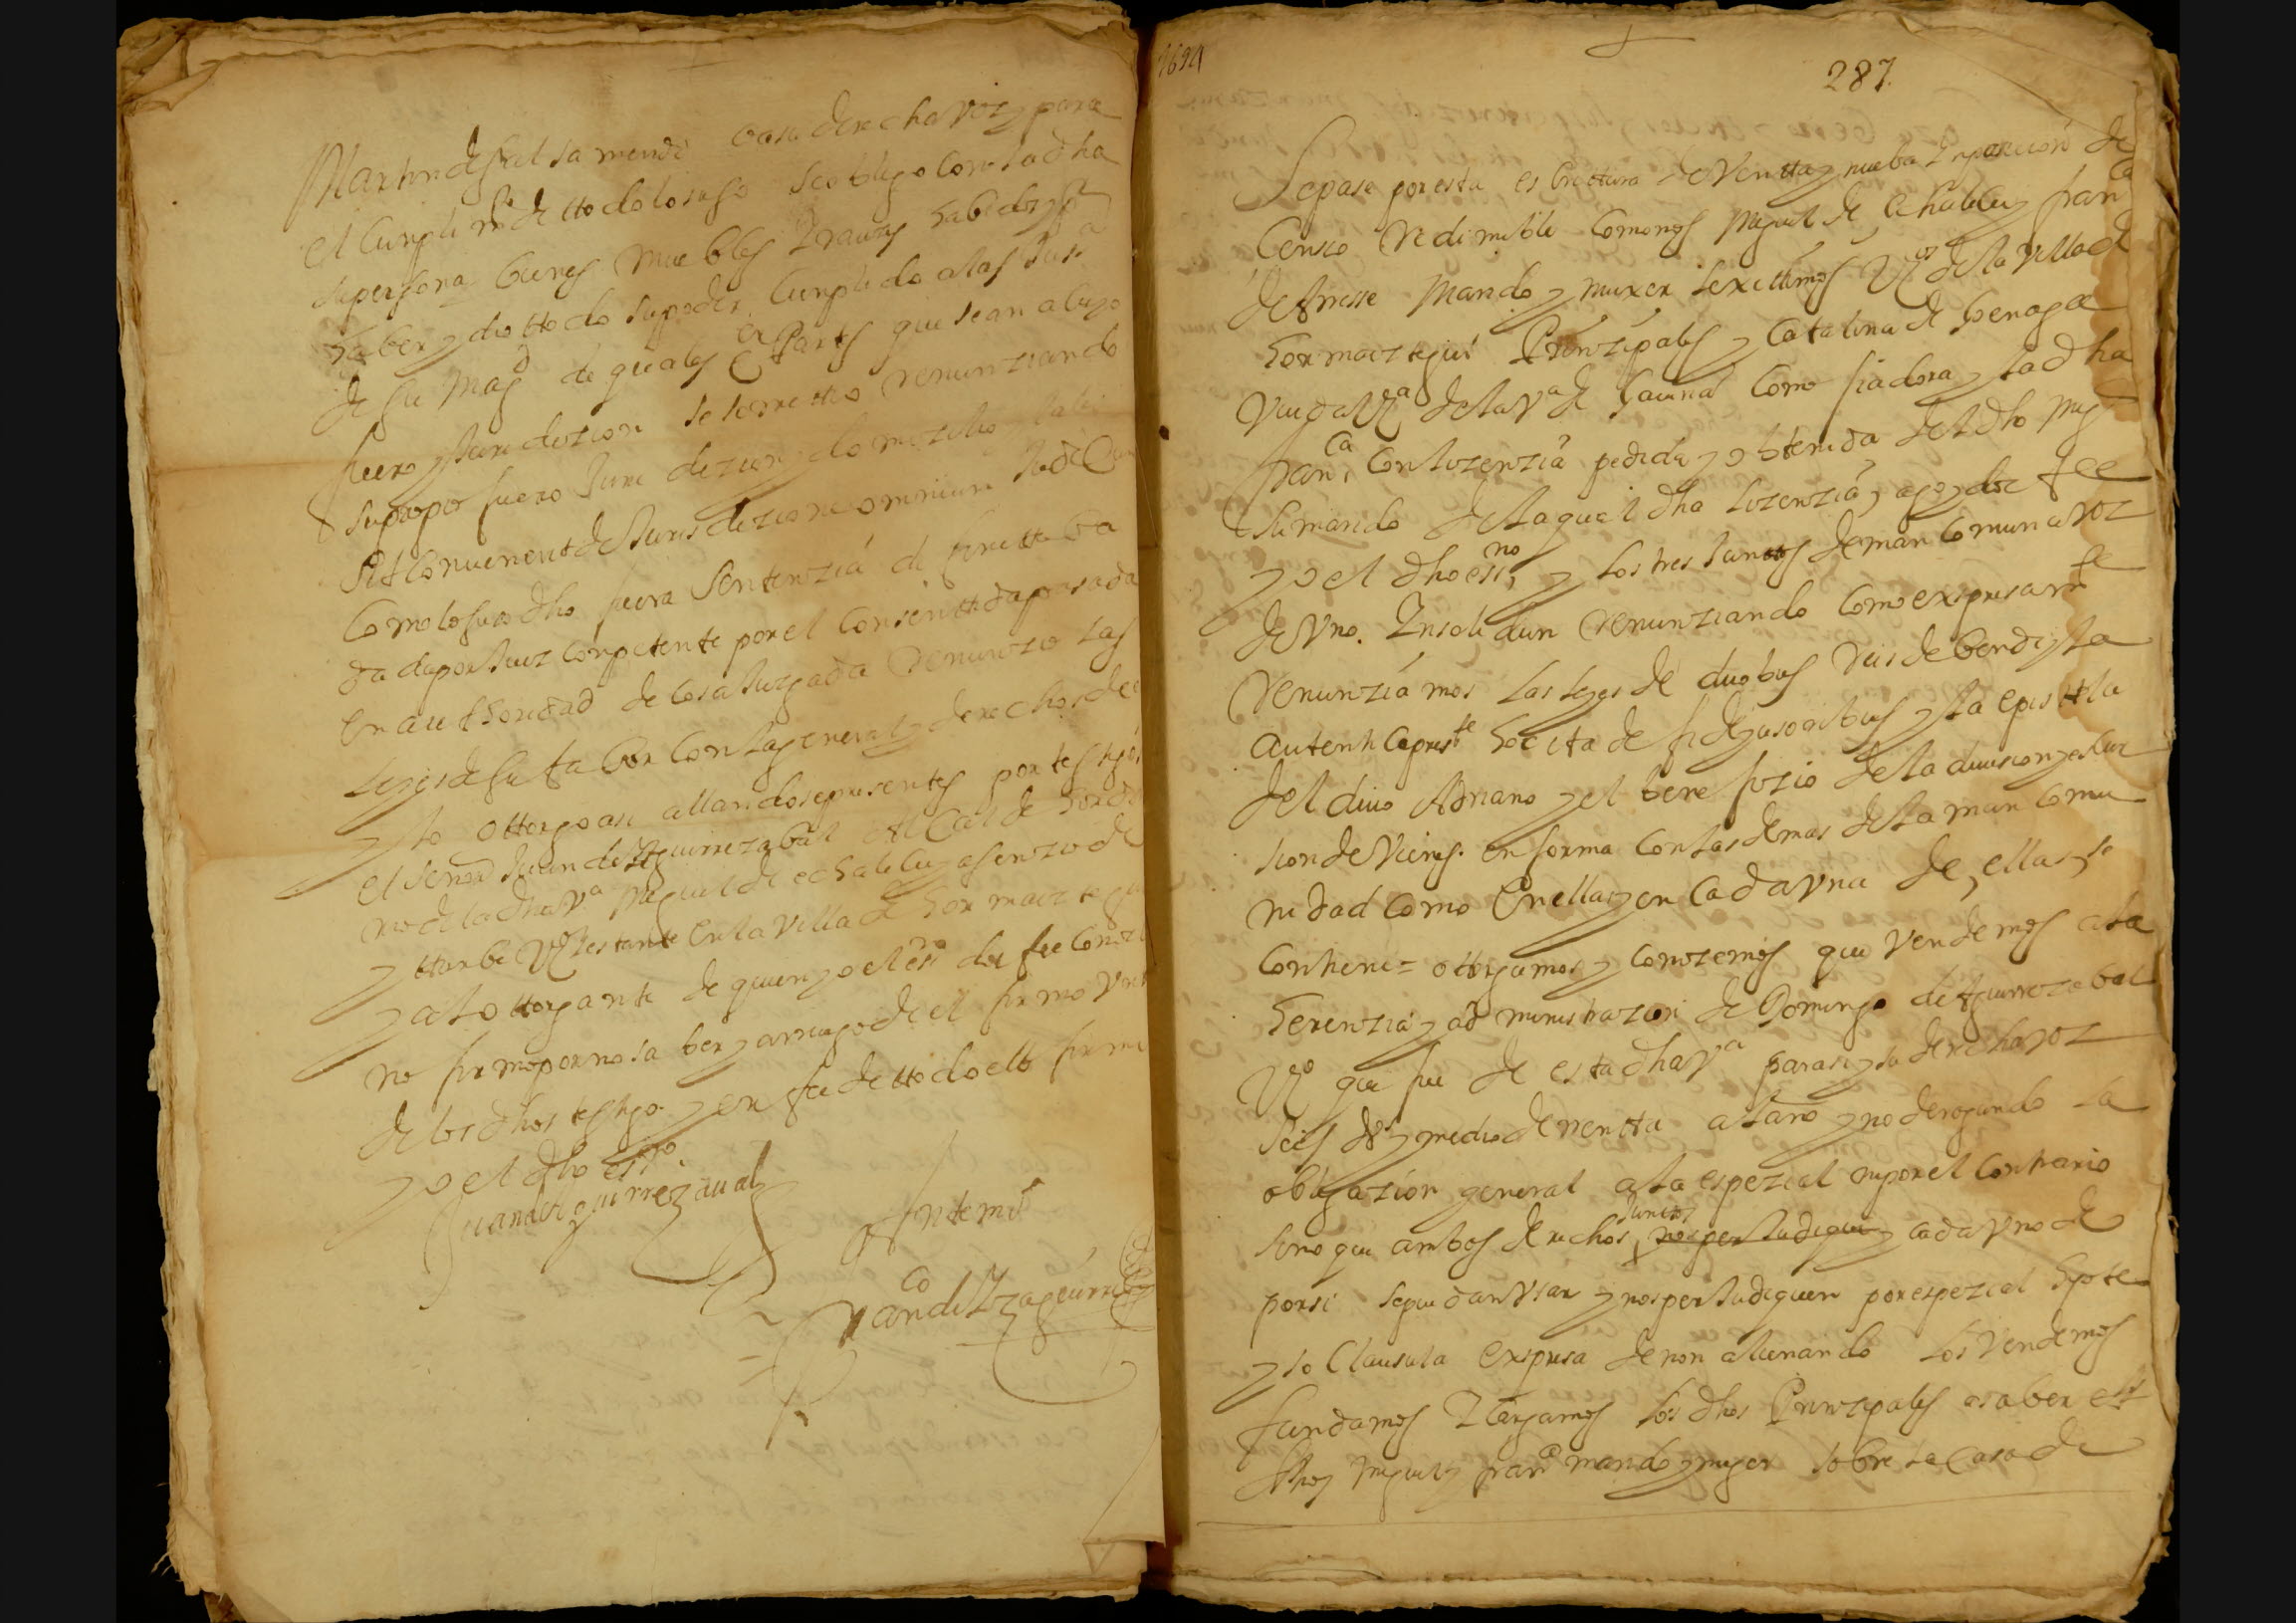 Martin de Galsamendi o a su derecha voz y para
el cumplimº de ttodo lo suso se obligo con la dha
su persona y bienes muebles y raizes habidos y pr
haber y dio ttodo su poder cumplido a las Jusª
de su Magd de quales quier Partes que sean a cuyo
fuero y Juridizion se sometio renunziando
su propio fuero Juridizion y domizilio y la ley
sit convenerit de Jurisdizione omnium Judicum
como lo suso dho fuera sentenzia difinittiba
dada por Juez conpetente por el consenttida y pasada
en authoridad de cosa Juzgada renunzio las
leyes de su fabor con la general y derechos de
y lo ottorgo asi allandose presentes por testigos
el señor Juan de Aguirrezabal Alcalde hordi
no de la dha vª Miguel de echaleku asenzio de
ytturbe Vº y estante en la villa de hormaiztegui
y al ottorgante de quien yo el essno doi fee conozco
no firmo por no saber y a rruego de el firmo vno
de los dhos testigos y en fee de ttodo ello firme
yo el dho essno
Juan de aguirrezaual
Ante mi
Francº de Yzaguirre
1694
287
Sepase por esta escrittura de Ventta y nueba Ynposicion de
Censo redimible como nos Miguel de echaleku y franca
de Arresse Marido y muxer lexittimos Vºs de la villa de
hormaiztegui Prinzipales y Catalina de benagª
Viuda Vª de la vª de Gauiria como fiadora y la dha
franca con lizenzia pedida y obtenida del dho Migl
su marido de la qual dha lizenzia, yo doi fee
yo el dho essno, y los tres Junttos de man comun a voz
de vno. Ynsolidun renunziando como expresamte
renunziamos las leyes de duobus reis debendi y la
autentica presste hoc ita de fidejusoribus y la epistola
del diuo Adriano y el benefizio de la diuision y escur
sion de vienes. en forma con las demas de la man comu
nidad como en ellas y en cada vna de, ellas, se
contiene = ottorgamos y conozemos que vendemos a la
herenzia y administrazion de Domingo de Aguirrezabal
Vº que fue de esta dha vª para si y su derecha voz
seis ds y medio de rentta al año y no derogando la
obligazion general a la espezial ni por el contrario
sino que ambos derechos Juntos nos perJudiquen y cada vno de
por si se puedan vsar y nos perJudiquen por espezial hipote
y so Clausula expresa de non alienando los vendemos
fundamos y cargamos los dhos Prinzipales a saber los
dhos Miguel y franca marido y muger sobre la casa de